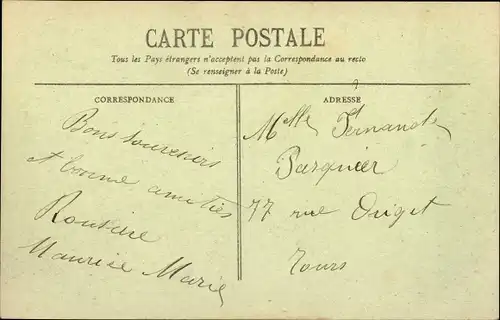 CARTE POSTALE
Tous les Pays étrangers n'acceptent pas la Correspondance au recto
(Se renseigner à la Poste)
CORRESPONDANCE
Bons souvenirs
et bonne amitiés
Maurice Marie
ADRESSE
Melle Fernande
Pasquier
77 rue Origet
Tours